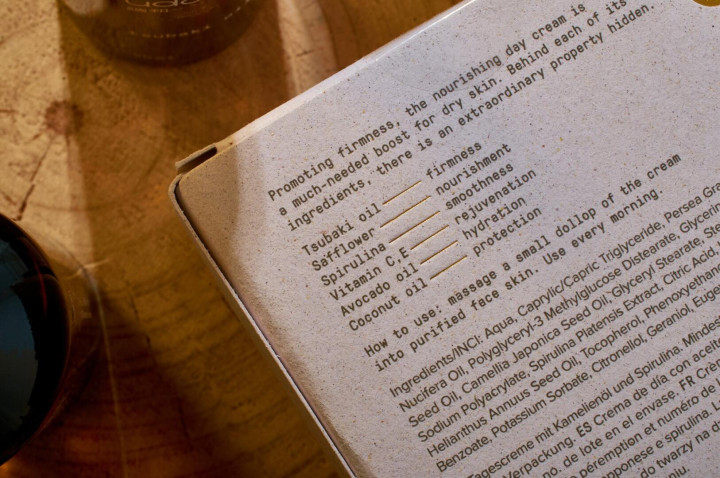 TSUBAKI
Promoting firmness, the nourishing day cream is
a much-needed boost for dry skin. Behind each of its
ingredients, there is an extraordinary property hidden.
Tsubaki oil firmness
Safflower nourishment
Spirulina smoothness
Vitamin C,E rejuvenation
Avocado oil hydration
Coconut oil protection
How to use: massage a small dollop of the cream
into purified face skin. Use every morning.
Ingredients/INCI: Aqua, Caprylic/Capric Triglyceride, Persea
Nucifera Oil, Polyglyceryl-3 Methylglucose Distearate,
Seed Oil, Camellia Japonica Seed Oil, Glyceryl Stearate,
Sodium Polyacrylate, Spirulina Platensis Extract, Citric Acid,
Helianthus Annuus Seed Oil, Tocopherol, Phenoxyethanol
Benzoate, Potassium Sorbate, Citronellol, Geraniol,
Tagescreme mit Kamelienöl und Spirulina.
Verpackung. ES Crema de día con
no. de lote en el envase. FR
péremption et numéro de
japonese e spirulina.
do twarzy na